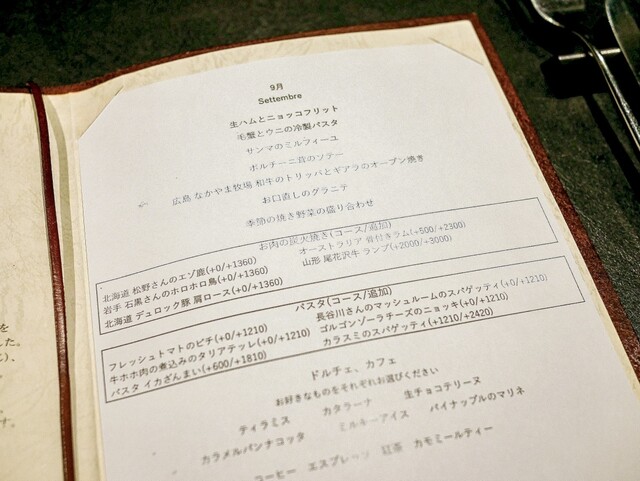 9月
Settembre
生ハムとニョッコフリット
毛蟹とウニの冷製パスタ
サンマのミルフィーユ
ポルチーニ茸のソテー
広島 なかやま牧場 和牛のトリッパとギアラのオーブン焼き
お口直しのグラニテ
季節の焼き野菜の盛り合わせ
お肉の炭火焼き(コース/追加)
北海道 松野さんのエゾ鹿(+0/+1360)
オーストラリア 骨付きラム(+500/+2300)
岩手 石黒さんのホロホロ鳥(+0/+1360)
山形 尾花沢牛 ランプ(+2000/+3000)
北海道 デュロック豚 肩ロース(+0/+1360)
パスタ(コース/追加)
フレッシュトマトのピチ(+0/+1210)
長谷川さんのマッシュルームのスパゲッティ(+0/+1210)
牛ホホ肉の煮込みのタリアテッレ(+0/+1210)
ゴルゴンゾーラチーズのニョッキ(+0/+1210)
パスタ イカざんまい(+600/+1810)
カラスミのスパゲッティ(+1210/+2420)
ドルチェ、カフェ
お好きなものをそれぞれお選びください
ティラミス カタラーナ 生チョコテリーヌ
カラメルパンナコッタ ミルキーアイス パイナップルのマリネ
コーヒー エスプレッソ 紅茶 カモミールティー